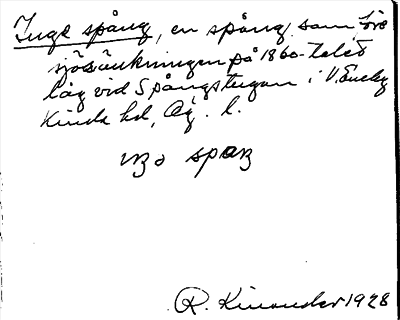 Inge spång, en spång, som före
sjösänkningen på 1860-talet
låg vid Spångstugan i V. Eneby
Kinda hd, Ög. l.
spaŋ
R. Kinander 1928